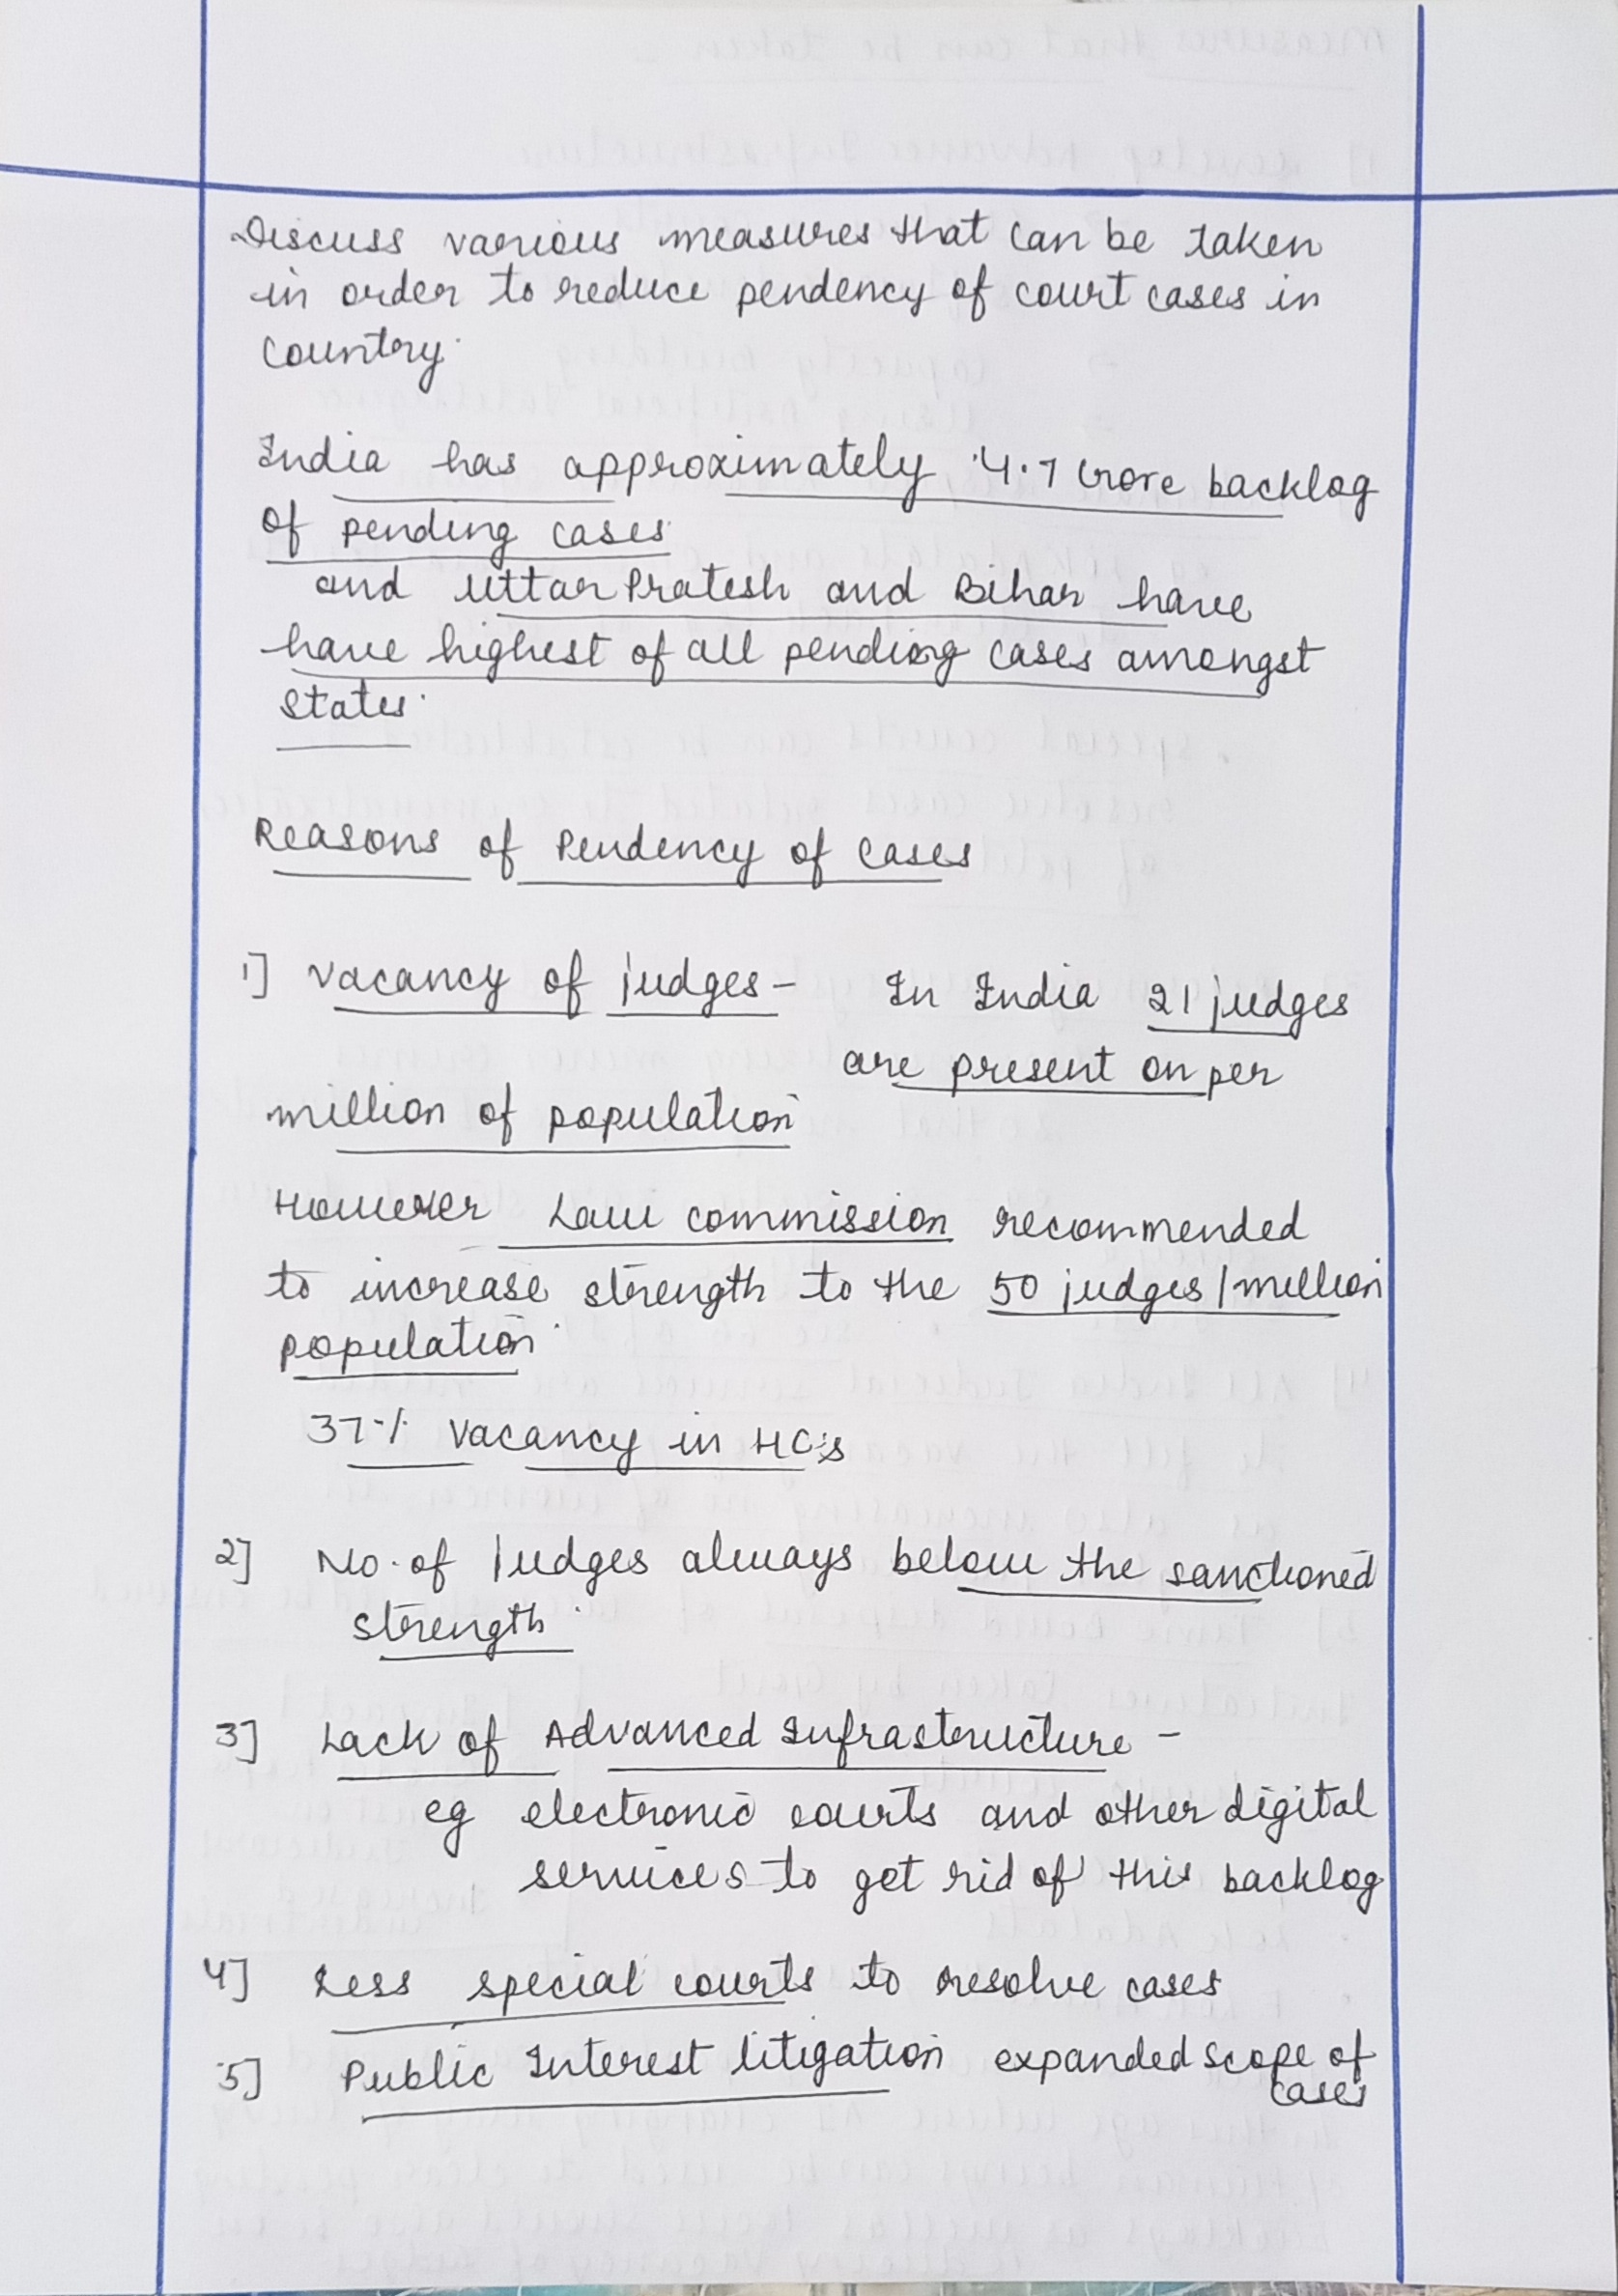 Discuss various measures that can be taken
in order to reduce pendency of court cases in
country.
India has approximately 4.7 crore backlog
of pending cases.
and Uttar Pratesh and Bihar have
have highest of all pending cases amongst
states.
Reasons of Pendency of cases
1] Vacancy of judges – In India 21 judges
are present on per
million of population
However Law commission recommended
to increase strength to the 50 judges/million
population.
37% vacancy in HC's
2] No. of Judges always below the sanctioned
strength.
3] Lack of Advanced Infrastructure –
eg electronic courts and other digital
services to get rid of this backlog
4] Less special courts to resolve cases
5] Public Interest litigation expanded scope of
cases